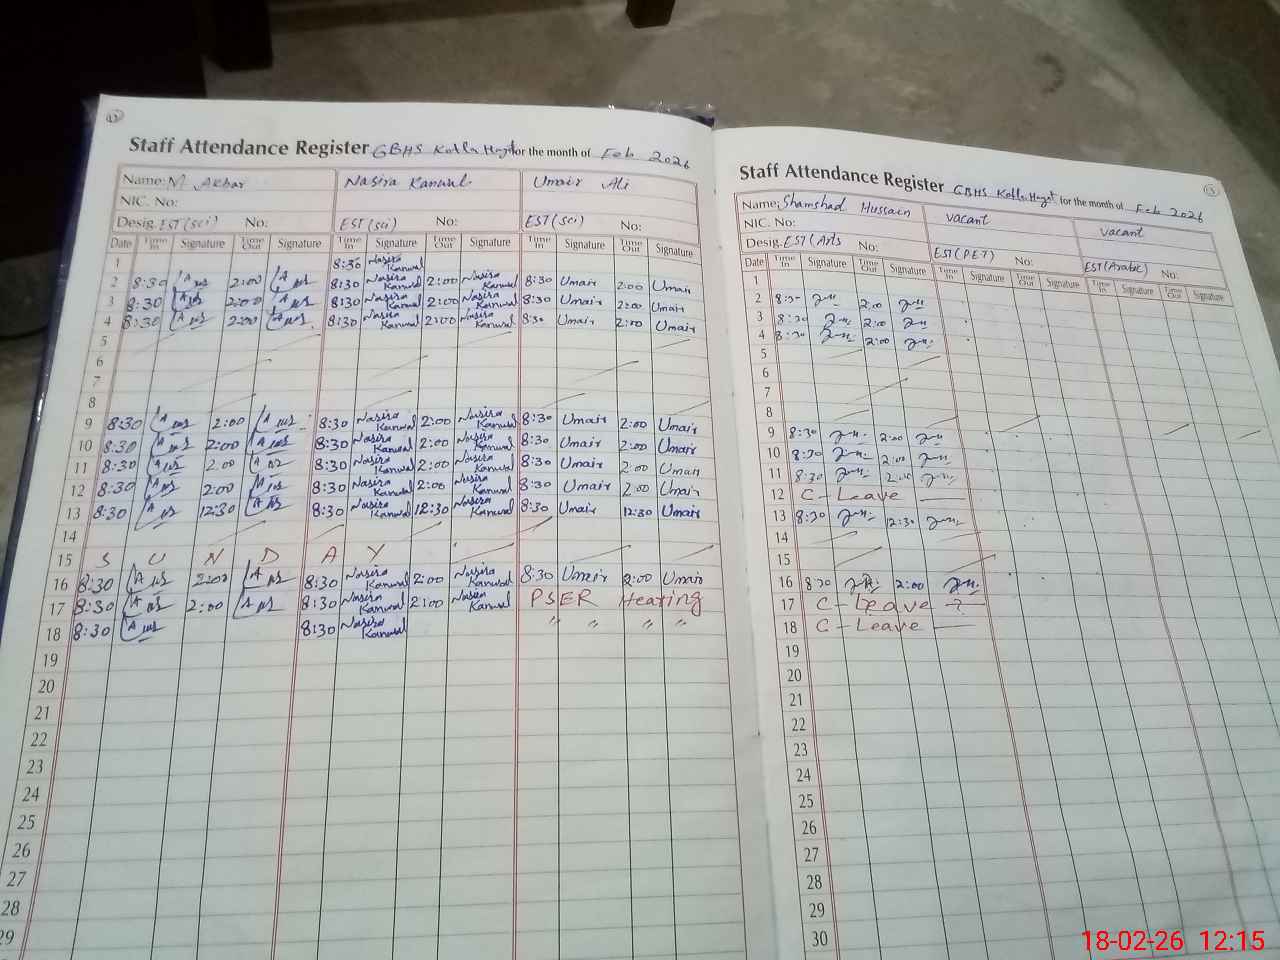 Staff Attendance Register GBHS Kotla Hayat for the month of Feb 2026
Name: M Akbar Nasira Kanwal Umair Ali
NIC. No:
Desig. EST(sci) No: EST(sci) No: EST(sci) No:
Date Time In Signature Time Out Signature Time In Signature Time Out Signature Time In Signature Time Out Signature
1 8:30 Nasira Kanwal
2 8:30 2:00 8:30 Nasira Kanwal 2:00 Nasira Kanwal 8:30 Umair 2:00 Umair
3 8:30 2:00 8:30 Nasira Kanwal 2:00 Nasira Kanwal 8:30 Umair 2:00 Umair
4 8:30 2:00 8:30 Nasira Kanwal 2:00 Nasira Kanwal 8:30 Umair 2:00 Umair
5
6
7
8
9 8:30 2:00 8:30 Nasira Kanwal 2:00 Nasira Kanwal 8:30 Umair 2:00 Umair
10 8:30 2:00 8:30 Nasira Kanwal 2:00 Nasira Kanwal 8:30 Umair 2:00 Umair
11 8:30 2:00 8:30 Nasira Kanwal 2:00 Nasira Kanwal 8:30 Umair 2:00 Umair
12 8:30 2:00 8:30 Nasira Kanwal 2:00 Nasira Kanwal 8:30 Umair 2:00 Umair
13 8:30 12:30 8:30 Nasira Kanwal 12:30 Nasira Kanwal 8:30 Umair 12:30 Umair
14
15 S U N D A Y
16 8:30 2:00 8:30 Nasira Kanwal 2:00 Nasira Kanwal 8:30 Umair 2:00 Umair
17 8:30 2:00 8:30 Nasira Kanwal 2:00 Nasira Kanwal PSER Hearing
18 8:30 8:30 Nasira Kanwal " " " "
19
20
21
22
23
24
25
26
27
28
29
Staff Attendance Register GBHS Kotla Hayat for the month of Feb 2026
Name: Shamshad Hussain vacant vacant
NIC. No:
Desig. EST(Arts No: EST(PET) No: EST(Arabic) No:
Date Time In Signature Time Out Signature Time In Signature Time Out Signature Time In Signature Time Out Signature
1
2 8:30 2:00
3 8:30 2:00
4 8:30 2:00
5
6
7
8
9 8:30 2:00
10 8:30 2:00
11 8:30 2:00
12 C-Leave
13 8:30 12:30
14
15
16 8:30 2:00
17 C-Leave
18 C-Leave
19
20
21
22
23
24
25
26
27
28
29
30
18-02-26 12:15